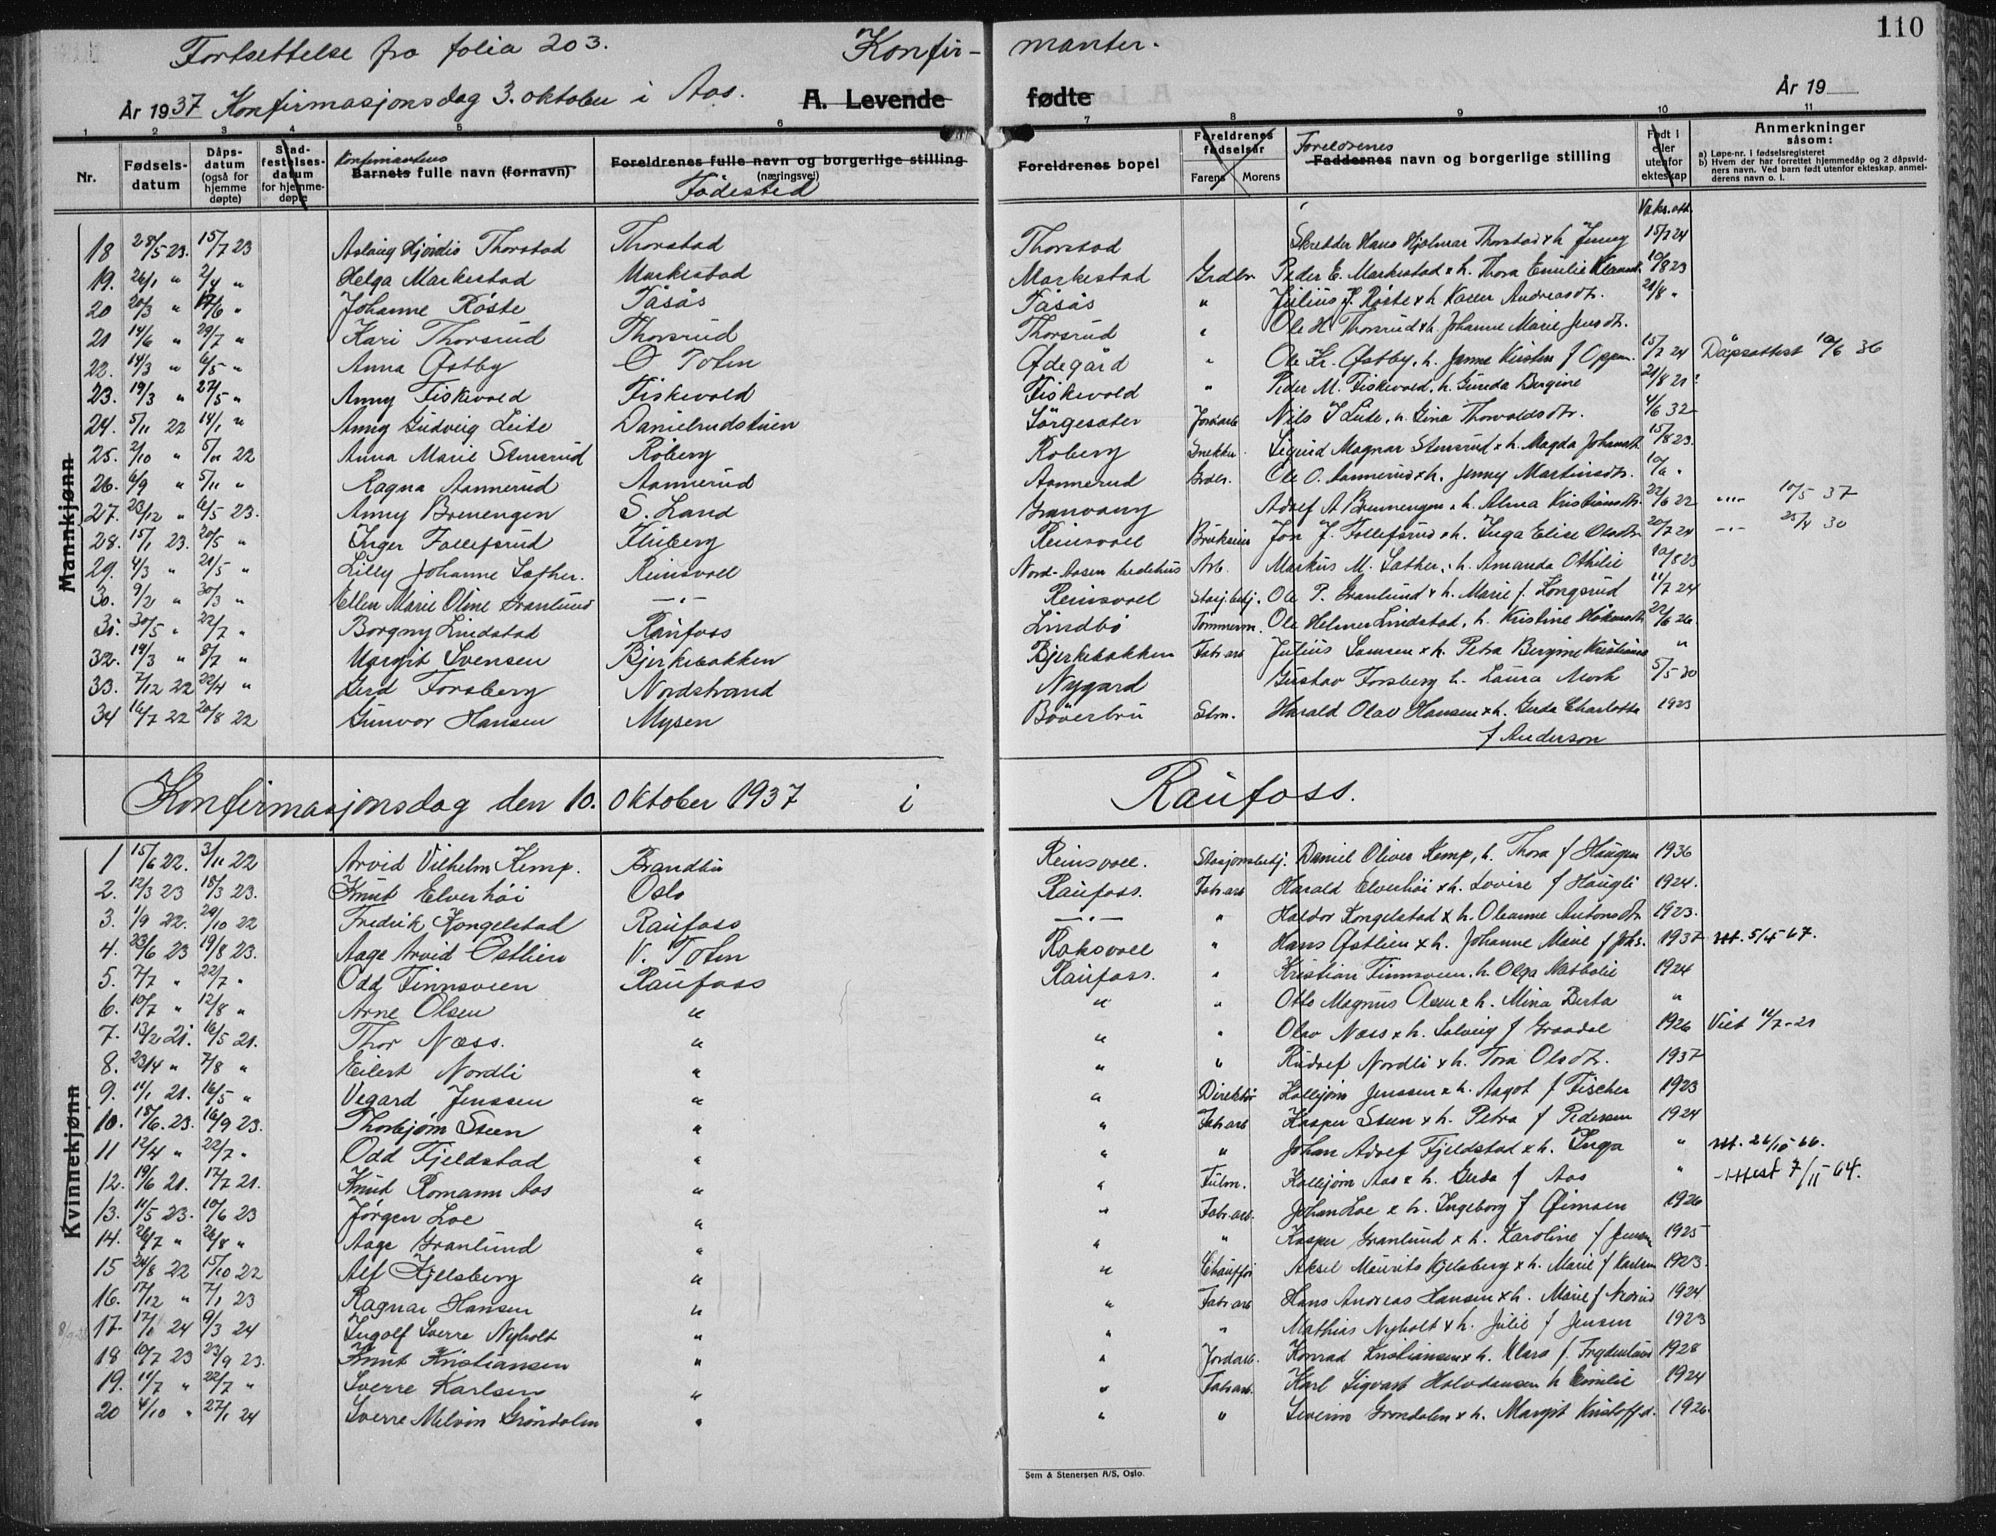 110
Fortsettelse fra folia 203. Konfir- manter.
År 1937 Konfirmasjonsdag 3. oktober i Aas. A. Levende fødte År 19
1 2 3 4 5 6 7 8 9 10 11
Nr. Fødselsdatum Dåpsdatum (også for hjemme døpte) Stadfestelsesdatum for hjemmedøpte Konfirmantens Barnets fulle navn (fornavn) Foreldrenes fulle navn og borgerlige stilling (næringsvei) Fødested Foreldrenes bopel Foreldrenes fødselsår Farens Morens Foreldrenes Faddernes navn og borgerlige stilling Født i eller utenfor ekteskap Anmerkninger såsom: a) Løpe-nr. i fødselsregisteret b) Hvem der har forrettet hjemmedåp og 2 dåpsvidners navn. Ved barn født utenfor ekteskap, anmelderens navn o. l.
Vaks.att.
Mannkjønn
18 28/5 23. 15/7 23 Aslaug Hjørdis Thorstad Thorstad Thorstad Skredder Hans Hjalmar Thorstad x h. Jenny 15/7 24
19. 26/1 " 2/4 " Helga Markestad Markestad Markestad Grdbr. Peder E. Markestad x h. Thora Emilie 10/8 23
20 20/3 " 17/6 " Johanne Røste Tåsås Tåsås " Julius J. Røste x h. Karen Andreasdtr. 21/8 "
21 14/6 " 29/7 " Kari Thorsrud Thorsrud Thorsrud " Ole H. Thorsrud x h. Johanne Marie Jensdtr.
22. 14/3 " 6/5 " Anna Østby Ø Toten Ødegård " Ole Kr. Østby, h. Jenne Kirstin f Oppen. 15/7 24 Dåpsattest 10/6 36
23. 19/3 " 27/5 " Anny Fiskevold Fiskevold Fiskevold " Peder M. Fiskevold, h. Gunda Bergine 21/8 21
24. 5/11 22 14/1 " Anny Gudveig Leite Danielrudstuen Sørgesæter Jordarb Nils J Leite, h. Gina Thorvaldsdtr. 4/6 32
25. 2/10 " 5/11 22 Anna Marie Stensrud Røberg Roberg Snekker Sigurd Magnar Stensrud x h. Magda Johansdtr. 15/8 23.
26. 6/9 " 5/11 " Ragna Aannerud Aannerud Aannerud Grdbr. Ole O. Aannerud x h. Jenny Martinsdtr. 10/6 "
27. 23/12 " 6/5 23. Anny Brenengen S. Land Granvang Adolf A Brennengen x h. Alma Kristiansdtr. 22/6 22 -"- 10/5 37
28. 15/1 23. 20/5 " Inger Follefsrud Fluberg Reinsvoll Bruksеier Jon J. Follefsrud x h. Inga Elise Olsdtr 20/7 24 -"- 25/4 30
29. 4/3 " 21/5 " Lilly Johanne Sæther. Reinsvoll Nord-Aasen bedehus Arb. Markus M. Sæther, h. Amanda Othilie 10/8 23
30. 9/2 " 30/3 " Ellen Marie Oline Granlund -"- Reinsvoll Stasj.betj. Ole P. Granlund x h. Marie f. Longsrud 11/7 24
31. 30/5 " 22/7 " Borgny Lindstad Raufoss Lindbø Tømmerm. Ole Helmer Lindstad, h. Kristine Håkensdtr 22/6 26.
32. 19/3 " 8/7 " Margit Svensen Bjerkebakken Bjerkebakken Fabr.arb Julius Svensen x h. Petra Bergine "
33. 7/12 22 22/4 " Gerd Forsberg Nordstrand Nygard Gustav Forsberg h. Laura Mork 5/5 30
34 16/7 22 20/8 22 Gunvor Hansen Mysen Bøverbru Stm. Harald Olav Hansen x h. Gerda Charlotte 1923
f Anderson
Konfirmasjonsdag den 10. oktober 1937 i Raufoss.
Kvinnekjønn
1 15/6 22. 3/11 22 Arvid Vilhelm Kemp. Brandbu Reinsvoll. Stasjonsbetj. Daniel Oliver Kemp, h. Thora f Haugen 1936
2. 12/3 23 18/3 23. Knut Elverhøi Oslo Raufoss. Fabr.arb Harald Elverhøi x h. Lovise f Haugli 1924.
3. 1/9 22. 29/10 22 Fredrik Kongelstad Raufoss -"- " Haldor Kongelstad x h. Oleanne Antonsdtr. 1923.
4. 23/6 23 19/8 23. Aage Arvid Østlien V. Toten Raksvoll " Hans Østlien x h. Johanne Marie f Johs. 1937 att. 5/4 67.
5. 7/7 " 22/7 " Odd Finnsveen Raufoss Raufoss. " Kristian Finnsveen, h. Olga Nathalie 1924
6. 10/7 " 12/8 " Arne Olsen " " " Otto Magnus Olsen x h. Mina Berta "
7. 13/2 21. 16/5 21. Thor Næss. " " " Olav Næss x h. Solveig f Graadal 1926 Viet 11/7-21
8. 23/4 " 7/8 " Eilert Nordli " " " Rudolf Nordli x h. Tora Olsdtr. 1937
9. 11/1 21. 16/5 " Vegard Jenssen " " Direktør Hallbjørn Jenssen x h. Aagot f Fischer 1923
10. 18/6. 23. 16/9 23. Thorbjørn Steen " " Fabr.arb Kasper Steen x h. Petra f Pedersen 1924
11 12/4 " 22/7 " Odd Fjeldstad " " " Johan Adolf Fjeldstad x h. Inga " att. 26/10 66.
12. 19/6 21. 17/7 21. Knud Romann Aas " " Fulm. Hallbjørn Aas x h. Gerda f Aas " Attest 7/11 64.
13. 11/5 23. 10/6 23 Jørgen Loe " " Fabr.arb. Johan Loe x h. Ingeborg f Øimoen 1926
14. 26/7 " 26/8 " Aage Granlund " " " Kasper Granlund x h. Karoline f Jensen 1925
15 24/8 22 15/10 22 Alf Kjelsberg " " Chauffør Aksel Maurits Kjelsberg x h. Marie f Karlsen 1923.
16. 17/12 " 7/1 23 Ragnar Hansen " " Fabr.arb Hans Andreas Hansen x h. Marie f 1924
17- 17/1 24 9/3 24 Ingolf Sverre Nyholt " " " Mathias Nyholt x h. Julie f Jensen 1923
18 10/7 23 23/9 23. Knut Kristiansen " " Jordarb. Konrad Kristiansen x h. Klara f. 1928
19. 11/7 " 22/7 " Sverre Karlsen " " Fabr.arb Karl Sigvart Halvdansen h Emilie 1924
20 4/10 " 27/1 24 Sverre Melvin Grøndalen " " " Severin Grøndalen x h. Margit Kristoff.d. 1926.
Sem & Stenersen A/S, Oslo.